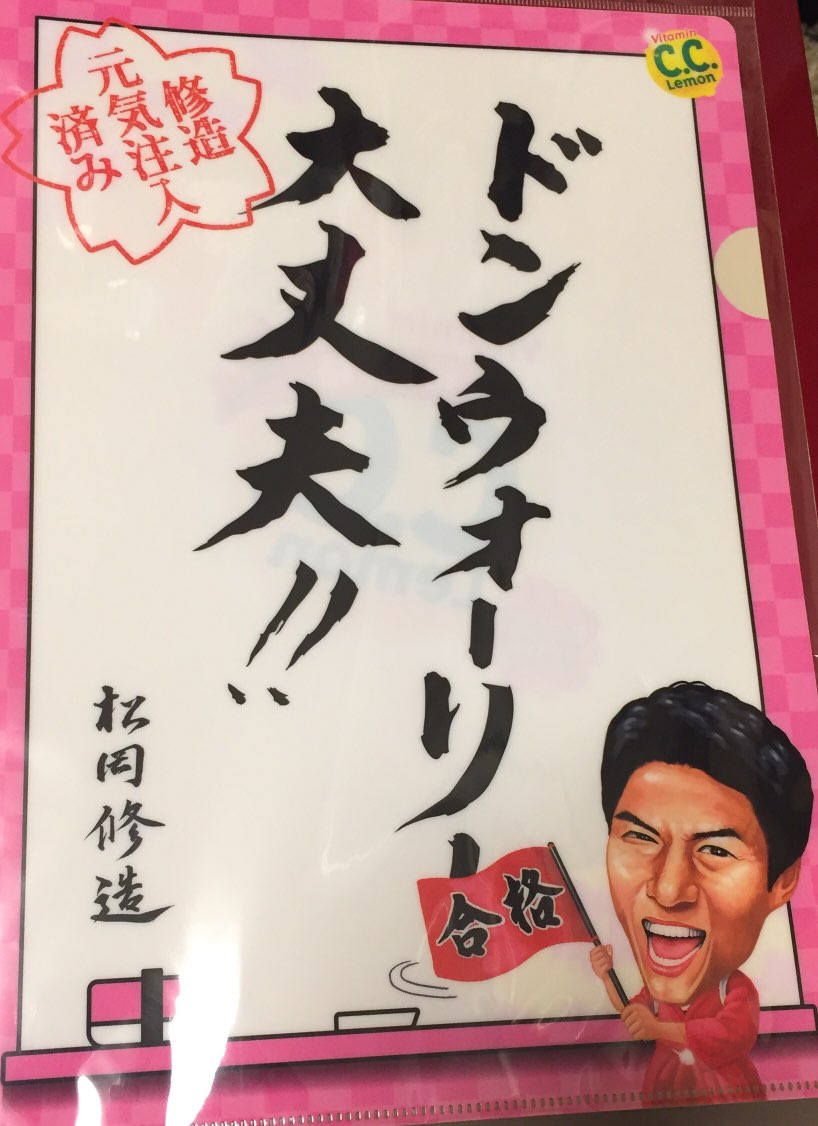 Vitamin
C.C.
Lemon
ドンウォーリー
大丈夫!!
修造
元気注入
済み
松岡修造
合格